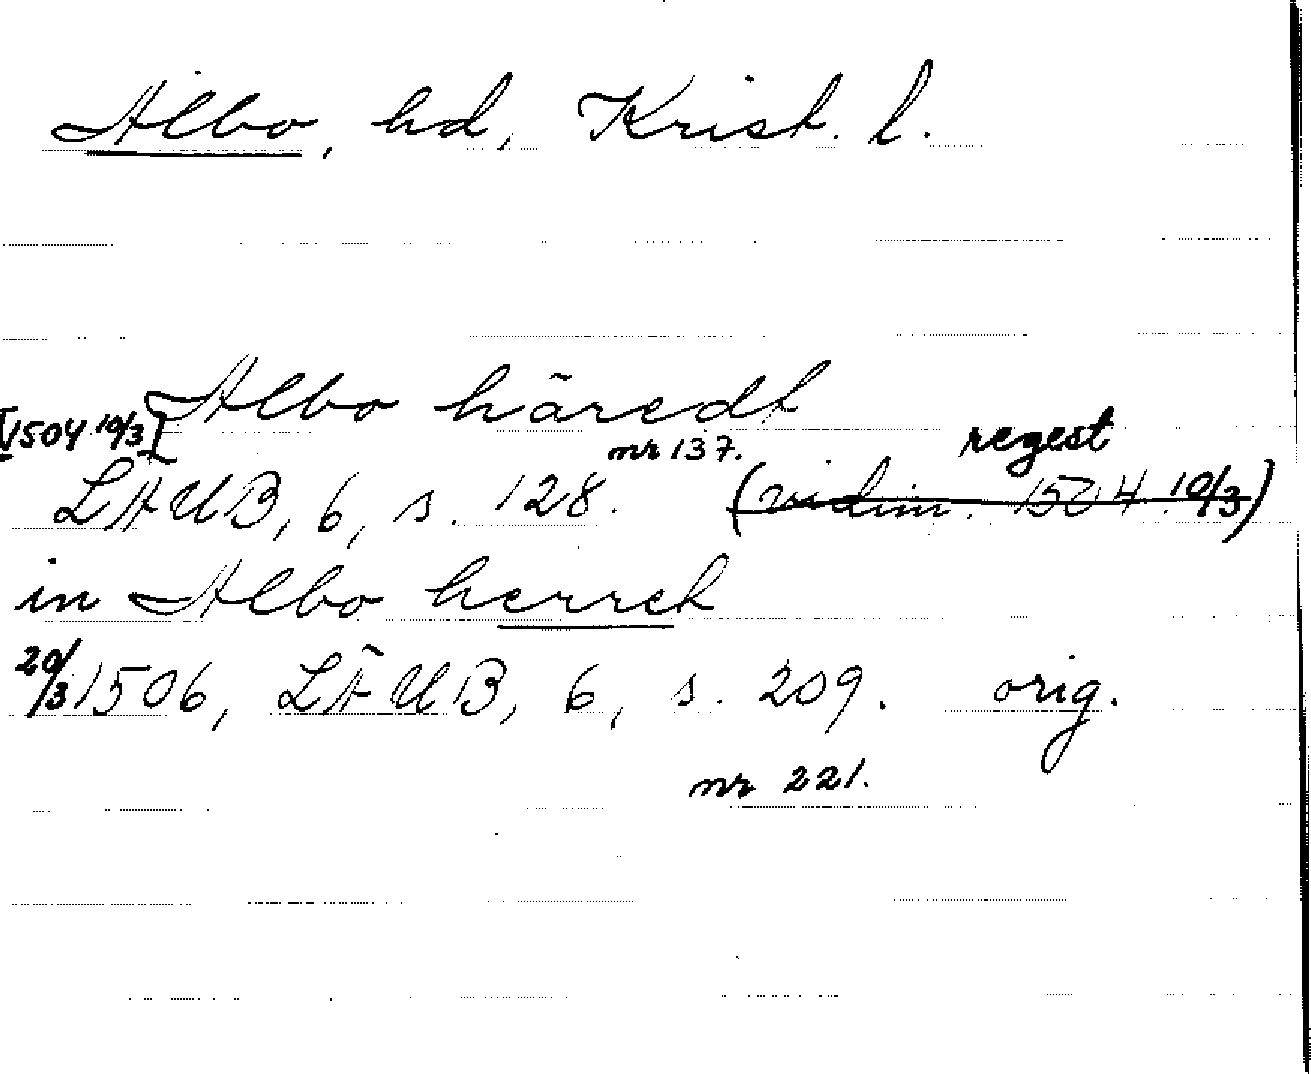 Albo, hd, Krist. l.
Albo häredt
[1504 10/3] nr 137. regest
LÄUB, 6, s. 128. (vidim. 1504 10/3)
in Albo herret
20/3 1506, LÄUB, 6, s. 209. orig.
nr 221.